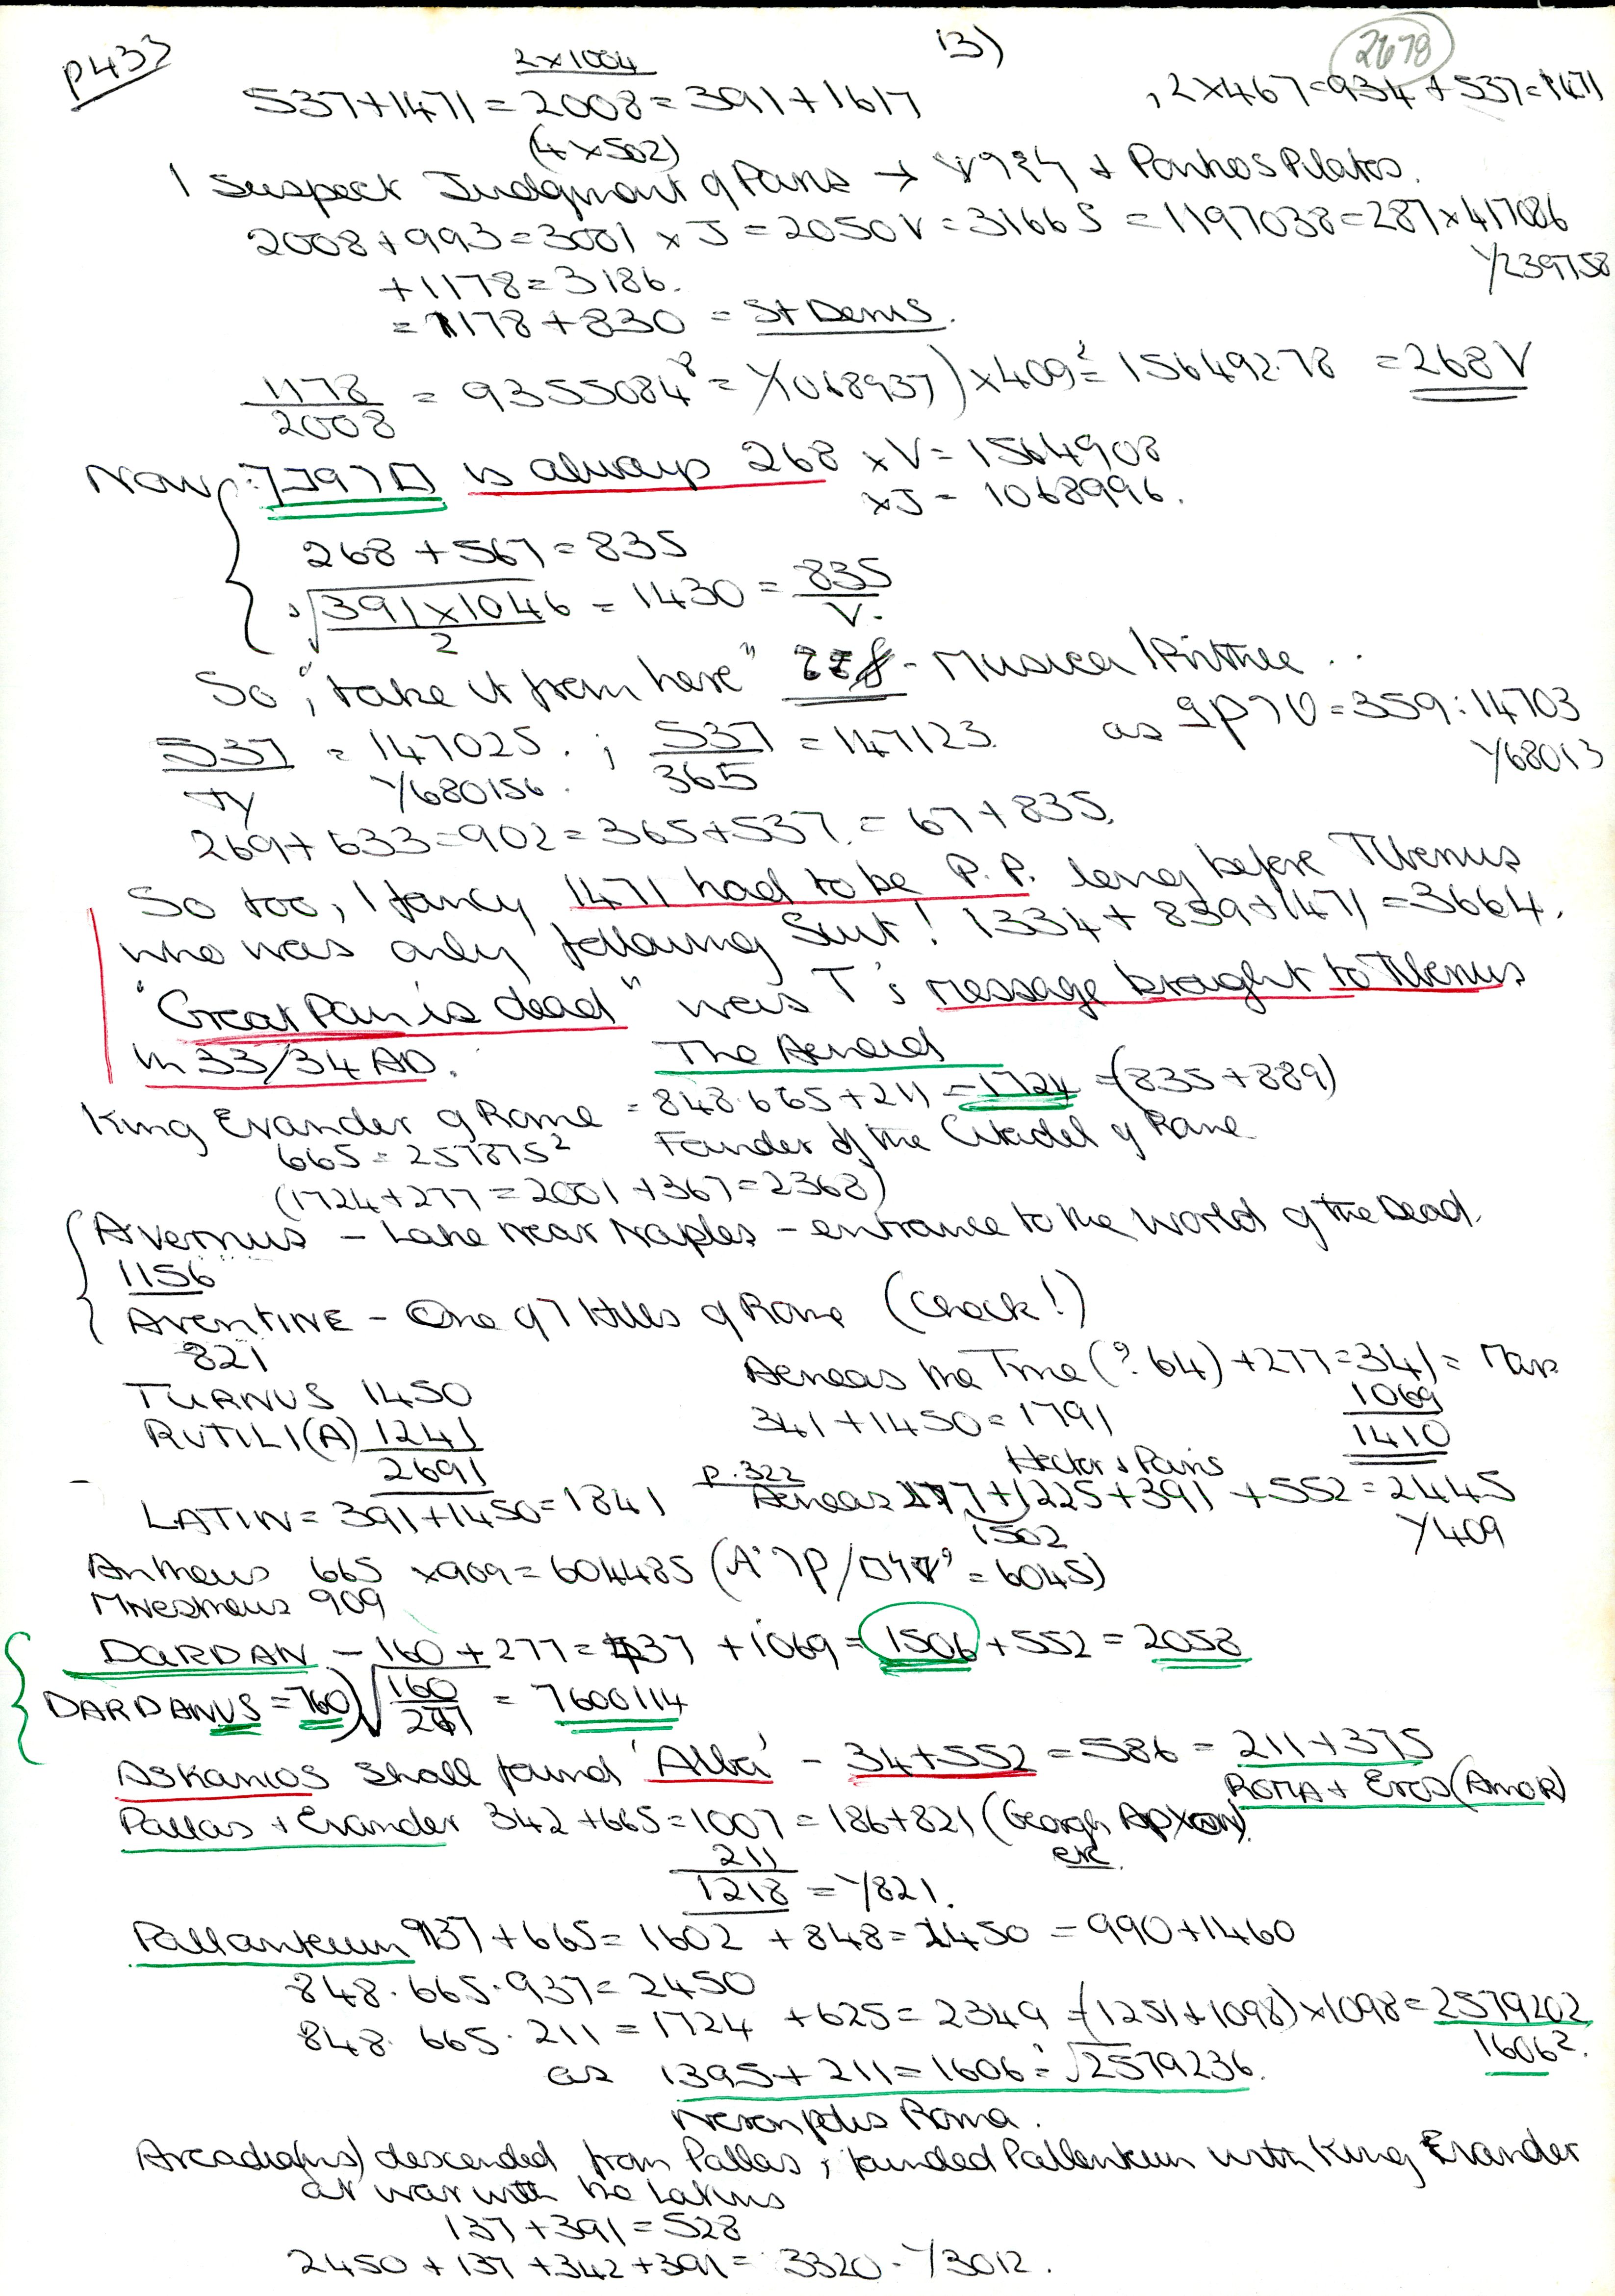 P433
13)
2678
2x1004
537+1471 = 2008 = 391+1617
, 2x467=934 + 537=1471
(4x502)
I suspect Judgment of Paris → + Pontios Pilatos.
2008+993=3001 x J = 2050V = 3166S = 1197038 = 287x417086
Y239758
+1178=3186.
= 1178+830 = St Denis.
1178/2008 = 9355084
x409² = 156492.78 = 268V
Now is always 268 xV = 1564908
xJ = 1068996.
268 + 567 = 835
√391x1046/2 = 1430 = 835/V.
So, "take it from here" - Musical
537/Jy = 147025. ; 537/365 = 147123.
Y680156.
= 359 : 14703
Y68013
269+633=902=365+537. = 67+835.
So too, I fancy 1471 had to be P.P. long before Tiberius
who was only following Suit! 1334+839+1471=3664.
"Great Pan is dead" was T's message brought to Tiberius
in 33/34 AD.
The Aeneid
King Evander of Rome = 848.665+211 = 1724 = (835+889)
665 = 257875² Founder of the Citadel of Rome
(1724+277=2001+367=2368)
Avernus - Lake near Naples - entrance to the World of the Dead.
1156
AVENTINE - One of 7 Hills of Rome (Check!)
821
TURNUS 1450
Aeneas the True (? 64) +277=341 = Mars
RUTILI(A) 1241
341+1450=1791
1069
2691
1410
Hector & Paris
LATIN = 391+1450=1841
p.322
Aeneas 277+1225+391 +552=2445
1502
Y409
Antheus 665 x909=604485
Mnestheus 909
DARDAN - 160+277=437 +1069=1506+552=2058
DARDANUS=760) √160/277 = 7600114
ASKANIOS shall found 'Alba' - 34+552=586 = 211+375
ROMA + Eros (AmoR)
Pallas + Evander 342+665=1007=186+821 (Georgh
etc.
211
1218 = Y821.
Pallanteum 937+665=1602 +848=2450 = 990+1460
848.665.937=2450
848.665.211=1724 +625=2349 = (1251+1098)x1098=2579202
1606².
as 1395+211=1606 = √2579236.
Neronpolis Roma.
Arcadia(ns) descended from Pallas, founded Pallenteum with King Evander
at war with the Latins
137+391=528
2450+137+342+391= 3320 - Y3012.